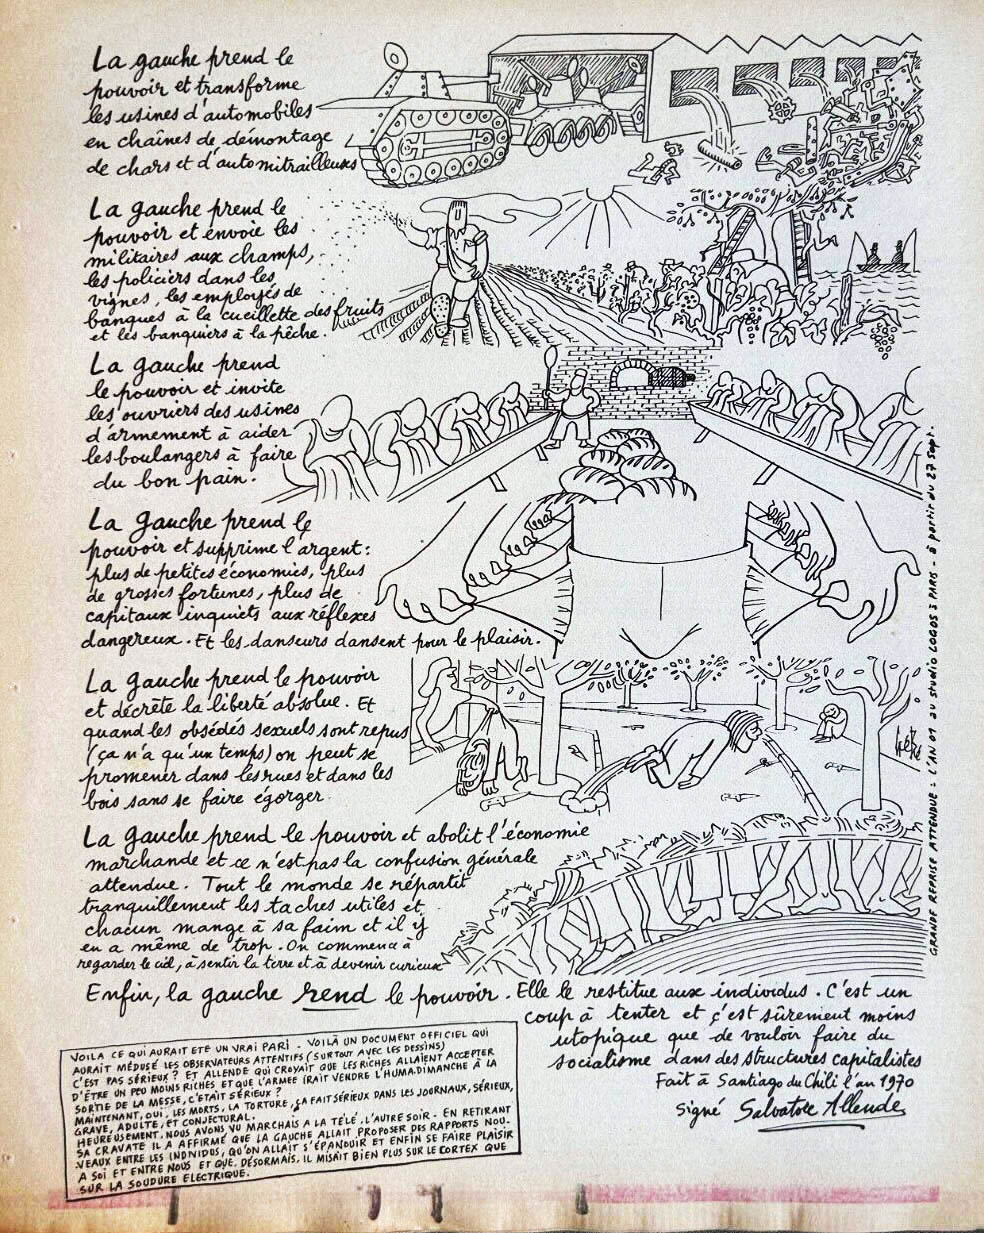 La gauche prend le
pouvoir et transforme
les usines d'automobiles
en chaînes de démontage
de chars et d'automitrailleuses
La gauche prend le
pouvoir et envoie les
militaires aux champs,
les policiers dans les
vignes, les employés de
banques à la cueillette des fruits
et les banquiers à la pêche.
La gauche prend
le pouvoir et invite
les ouvriers des usines
d'armement à aider
les boulangers à faire
du bon pain.
La gauche prend le
pouvoir et supprime l'argent :
plus de petites économies, plus
de grosses fortunes, plus de
capitaux inquiets aux réflexes
dangereux. Et les danseurs dansent pour le plaisir.
La gauche prend le pouvoir
et décrète la liberté absolue. Et
quand les obsédés sexuels sont repus
(ça n'a qu'un temps) on peut se
promener dans les rues et dans les
bois sans se faire égorger.
La gauche prend le pouvoir et abolit l'économie
marchande et ce n'est pas la confusion générale
attendue. Tout le monde se répartit
tranquillement les taches utiles et
chacun mange à sa faim et il y
en a même de trop. On commence à
regarder le ciel, à sentir la terre et à devenir curieux
Enfin, la gauche rend le pouvoir. Elle le restitue aux individus. C'est un
coup à tenter et c'est sûrement moins
utopique que de vouloir faire du
socialisme dans des structures capitalistes
Fait à Santiago du Chili l'an 1970
Signé Salvatore Allende
VOILA CE QUI AURAIT ETE UN VRAI PARI. VOILÀ UN DOCUMENT OFFICIEL QUI
AURAIT MÉDUSÉ LES OBSERVATEURS ATTENTIFS (SURTOUT AVEC LES DESSINS)
C'EST PAS SÉRIEUX ? ET ALLENDE QUI CROYAIT QUE LES RICHES ALLAIENT ACCEPTER
D'ÊTRE UN PEU MOINS RICHES ET QUE L'ARMÉE IRAIT VENDRE L'HUMA-DIMANCHE À LA
SORTIE DE LA MESSE, C'ÉTAIT SÉRIEUX ?
MAINTENANT, OUI, LES MORTS, LA TORTURE, ÇA FAIT SÉRIEUX DANS LES JOURNAUX, SÉRIEUX,
GRAVE, ADULTE, ET CONJECTURAL.
HEUREUSEMENT, NOUS AVONS VU MARCHAIS A LA TÉLÉ, L'AUTRE SOIR. EN RETIRANT
SA CRAVATE IL A AFFIRMÉ QUE LA GAUCHE ALLAIT PROPOSER DES RAPPORTS NOU-
VEAUX ENTRE LES INDIVIDUS, QU'ON ALLAIT S'ÉPANOUIR ET ENFIN SE FAIRE PLAISIR
A SOI ET ENTRE NOUS ET QUE, DÉSORMAIS, IL MISAIT BIEN PLUS SUR LE CORTEX QUE
SUR LA SOUDURE ELECTRIQUE.
GRANDE REPRISE ATTENDUE : L'AN 01 au studio LOGOS 3 PARIS - à partir du 27 Sept.